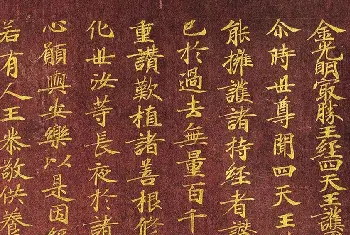 金光明冣勝王經四天王護國
尒時世尊聞四天王
能擁護諸持經者讚
已於過去無量百千
重讚歎植諸善根修
化世汝等長夜於諸
心願興安樂以是因緣
若有人王恭敬供養